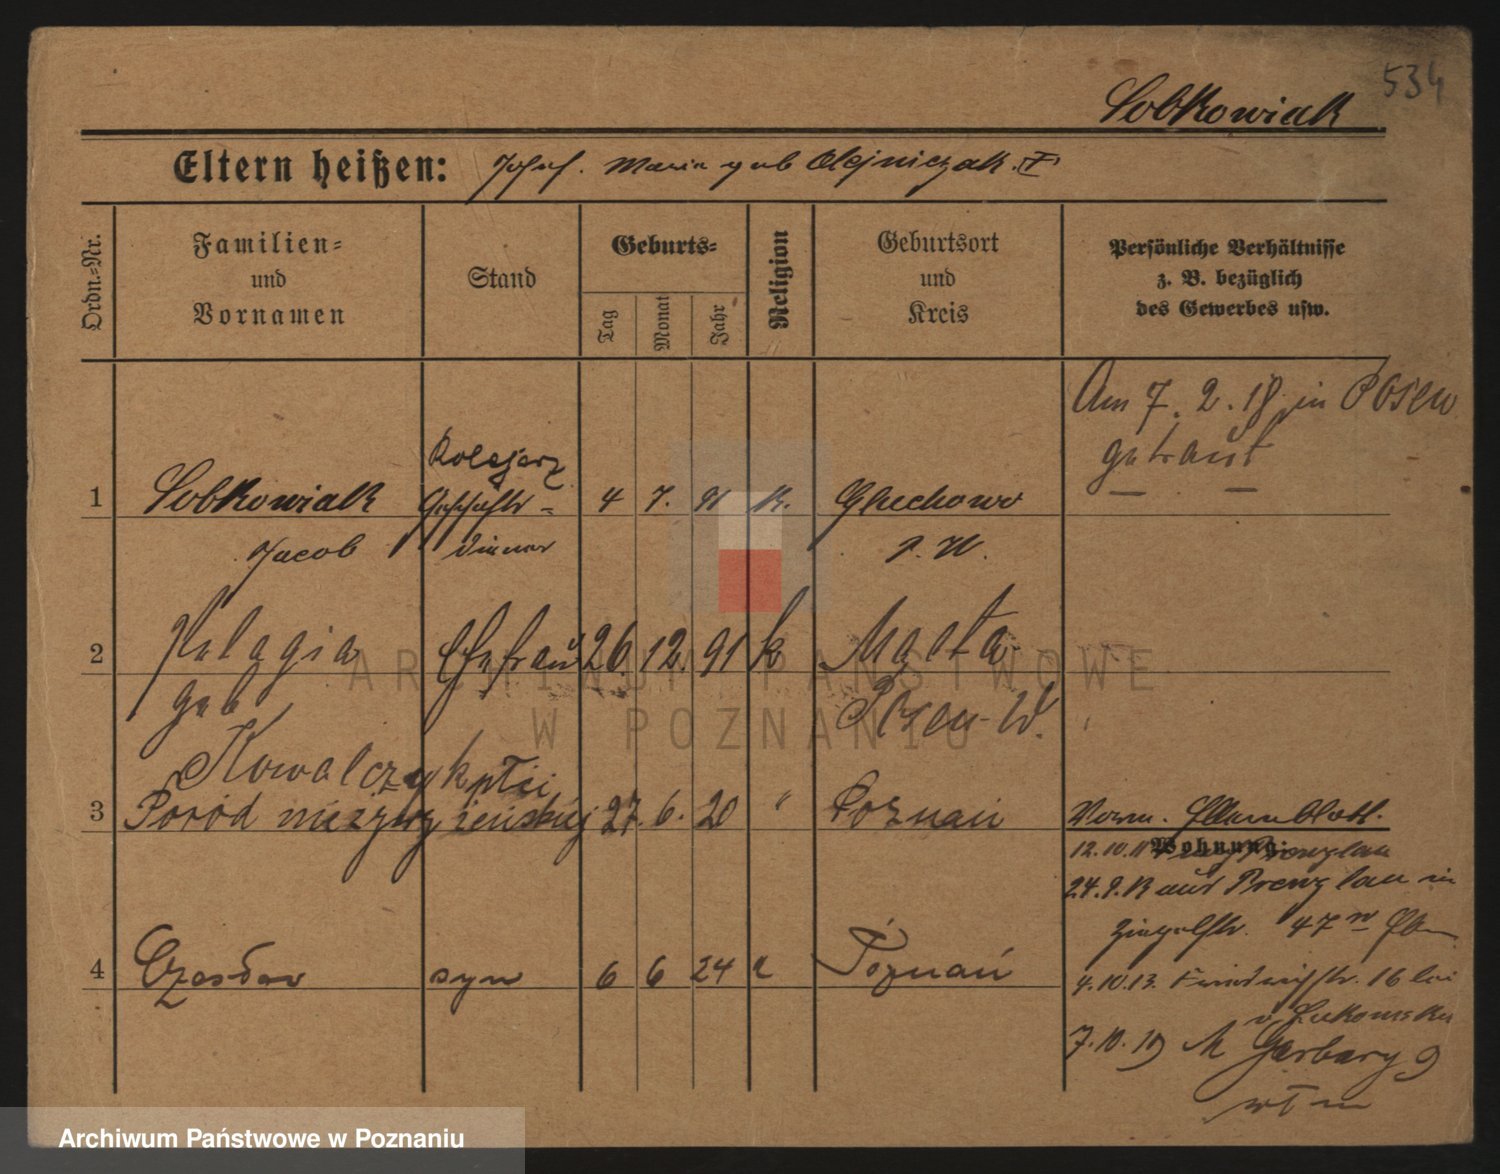 534
Sobkowiak
Eltern heißen: Josef. Maria geb Olejniczak.
Ordn.=Nr.
Familien=
und
Vornamen
Stand
Geburts=
Tag
Monat
Jahr
Religion
Geburtsort
und
Kreis
Persönliche Verhältnisse
z. B. bezüglich
des Gewerbes usw.
Am 7. 2. 18 in Posen
getraut
Kolejarz
1 Sobkowiak Geschäfts- 4 7. 91 K. Gluchowo
Jacob diener P. W.
2 Pelagia Ehefrau 26. 12. 91 k
geb Posen-W.
Kowalczyk płci
3 Poród nieżywy żeńskiej 27. 6. 20 " Poznań
Wohnung:
12.10.11 Prenzlau
24.9.13 aus Prenzlau in
47
4 Czesław syn 6 6 24 k Poznań
4.10.13. 16 bei
v. Lukomska
7.10.19 M Garbary 9